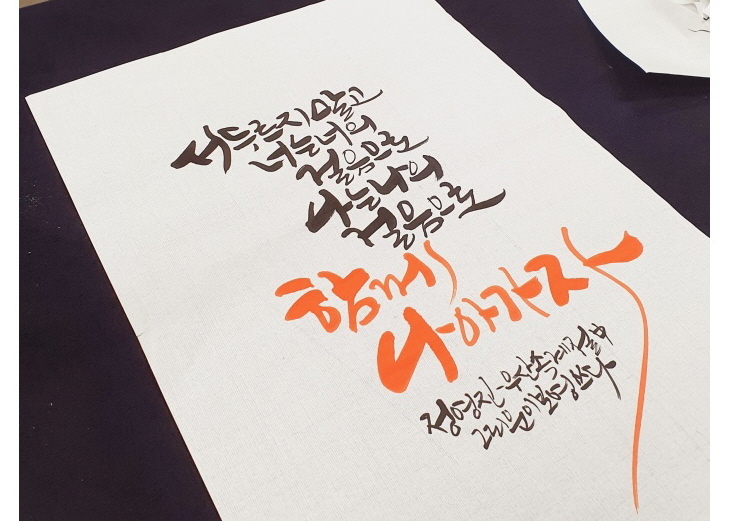 서두르지 말고
너는 너의
걸음으로
나는 나의
걸음으로
함께
나아가자
정영진 우산속 계절 中
그리운 이보영 쓰다